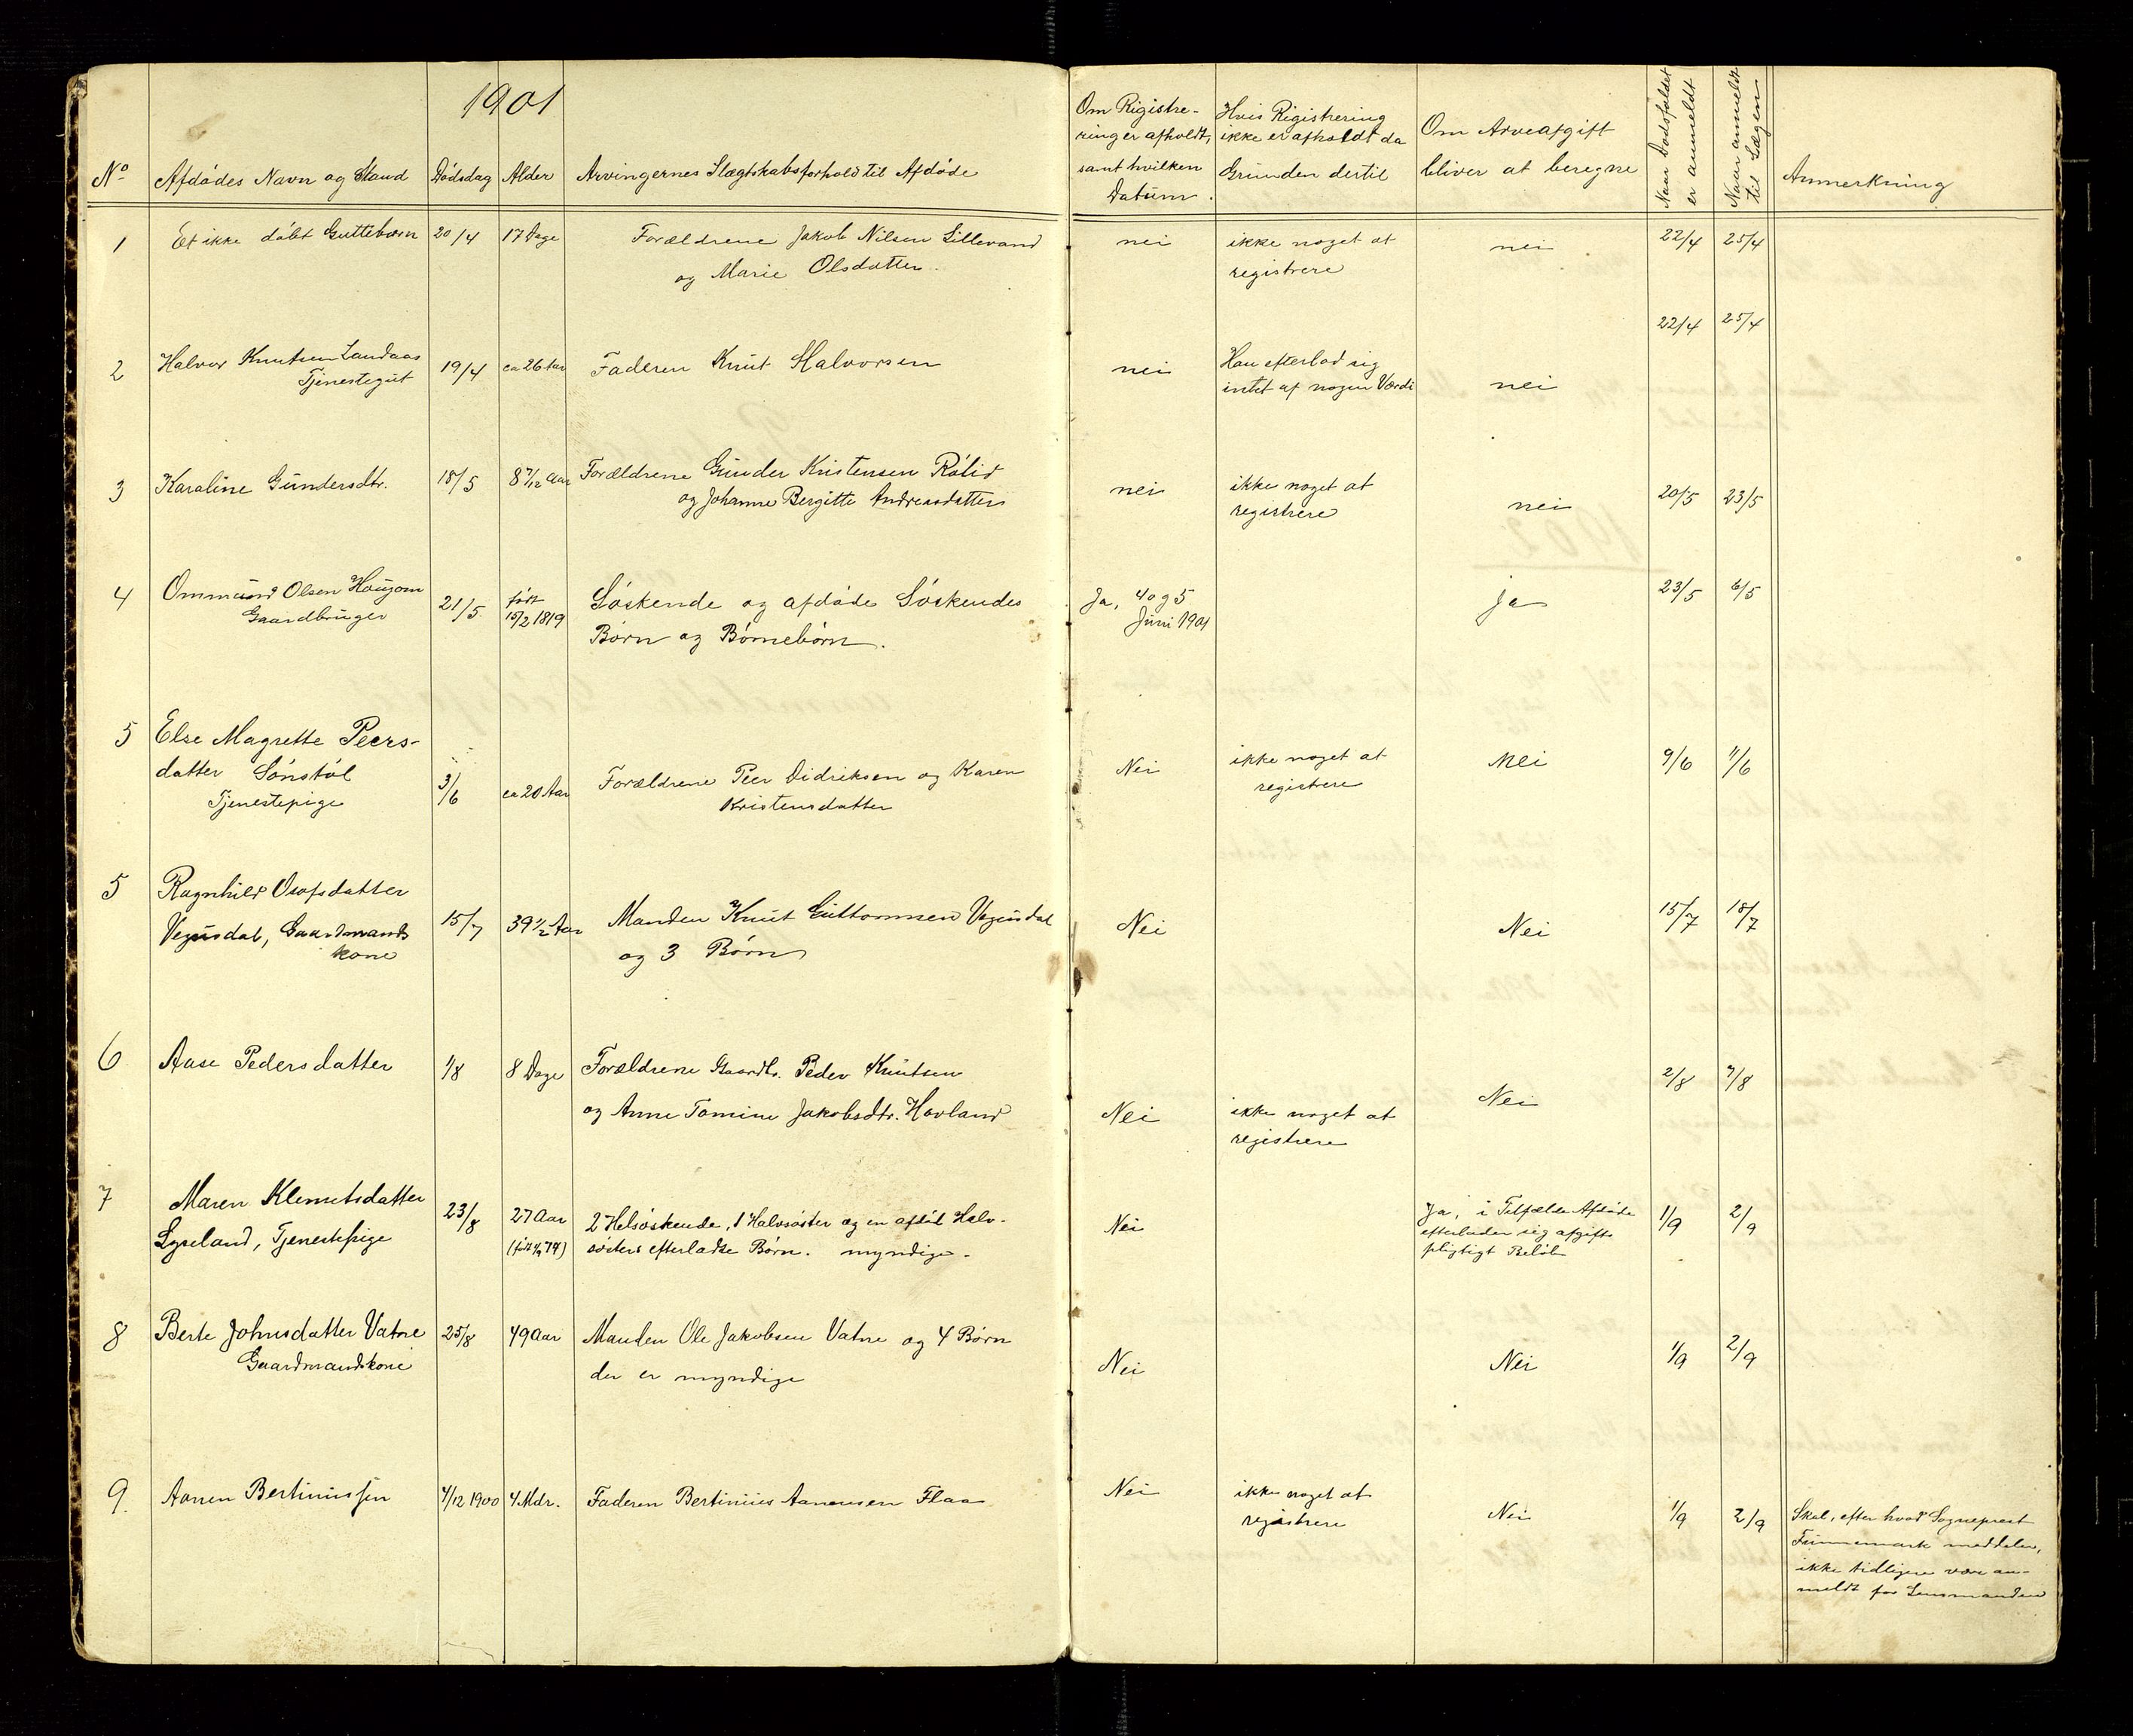 1901
No Afdødes Navn og Stand Dødsdag Alder Arvingernes Slægtskabsforhold til Afdøde
Om Rigistre-
ring er afholdt,
samt hvilken
Datum.
Hvis Rigistrering
ikke er afholdt da
Grunden dertil
Om Arveafgift
bliver at beregne
Naar Dødsfaldet
er anmeldt
Naar anmeldt
til Lægen
Anmerkning
1 Et ikke døbt Guttebarn 20/4 17 Dage Forældrene Jakob Nilsen Lillevand
og Marie Olsdatter.
nei ikke noget at
registrere
nei 22/4 25/4
2 Halvor Knutsen Landaas
Tjenestegut
19/4 ca 26 Aar Faderen Knut Halvorsen
nei Han efterlod sig
intet af nogen Værdi
nei 22/4 25/4
3 Karaline Gundersdtr. 18/5 8 7/12 Aar Forældrene Gunder Kristensen Rølid
og Johanne Bergitte Andreasdatter
nei ikke noget at
registrere
nei 20/5 23/5
4 Ommund Olsen Hougom
Gaardbruger
21/5 født
15/2 1819
Søskende og afdøde Søskendes
Børn og Børnebørn.
Ja, 4 og 5
Juni 1901
ja 23/5 6/5
5 Else Magrette Peers-
datter Sønstøl
Tjenestepige
3/6 ca 20 Aar Forældrene Peer Didriksen og Karen
Kristensdatter
Nei ikke noget at
registrere
Nei 9/6 11/6
5 Ragnhild Osofsdatter
Vegusdal, Gaardmands
kone
15/7 39 1/2 Aar Manden Knut Guttormsen Vegusdal
og 3 Børn
Nei Nei 15/7 18/7
6 Aase Pedersdatter 1/8 8 Dage Forældrene Gaardbr. Peder Knutsen
og Anne Tomine Jakobsdtr. Hovland
Nei ikke noget at
registrere
Nei 2/8 7/8
7 Maren Klemetsdatter
Lyseland, Tjenestepige
23/8 27 Aar
2 Helsøskende, 1 Halvsøster og en afdød Halv-
søsters efterladte Børn. myndige.
Nei Ja, i Tilfælde Afdøde
efterlader sig afgifts
pligtigt Beløb
1/9 2/9
8 Berte Johnsdatter Vatne
Gaardmandskone
25/8 49 Aar Manden Ole Jakobsen Vatne og 4 Børn
der er myndige
Nei Nei 1/9 2/9
9. Aanen Bertinussen 4/12 1900 4 Mdr. Faderen Bertinius Aanensen Flaa
Nei ikke noget at
registrere
Nei 1/9 2/9 Skal, efter hvad Sogneprest
Finnemark meddeler,
ikke tidligere være an-
meldt for Lensmanden